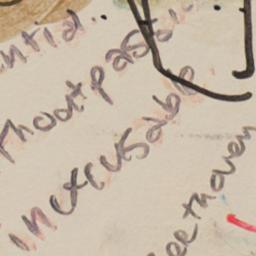 ntial..
That past
inexcusable
eethoven